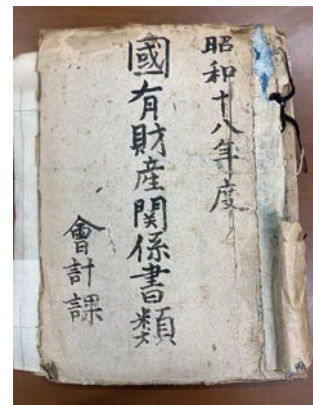 昭和十八年度
國有財産関係書類
會計課